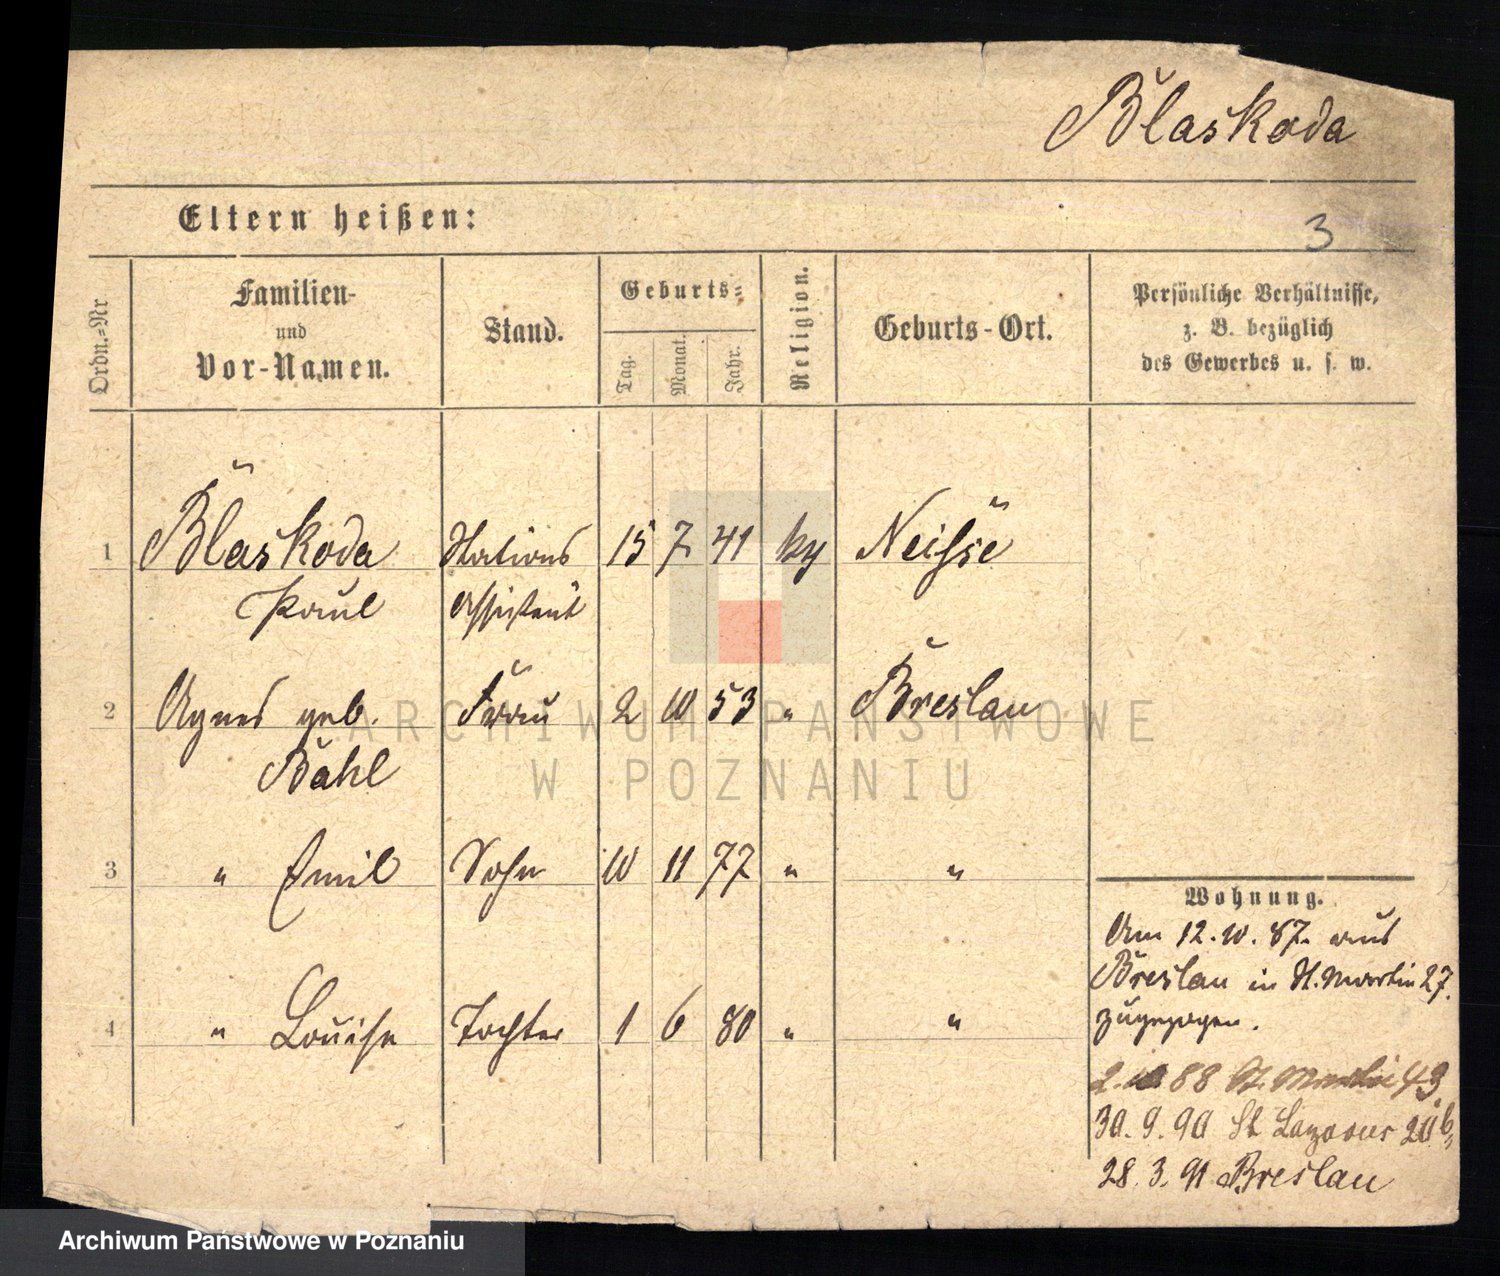 Blaskoda
Eltern heißen:
3
Ordn.-Nr
Familien-
und
Vor-Namen.
Stand.
Geburts-
Tag.
Monat.
Jahr.
Religion.
Geburts-Ort.
Persönliche Verhältnisse,
z. B. bezüglich
des Gewerbes u. s. w.
1 Blaskoda Stations 15 7 41 Neisse
Paul Assistent
2 Agnes geb. Frau 2 10 53 " Breslau
Bahl
3 " Emil Sohn 10 11 77 " "
4 " Louise Tochter 1 6 80 " "
Wohnung.
Am 12.10.87. aus
Breslau in St. Martin 27.
zugezogen.
88 St. Martin 43
30.9.90 St Lazarus 20b
28.3.91 Breslau
ARCHIWUM PAŃSTWOWE
W POZNANIU
Archiwum Państwowe w Poznaniu